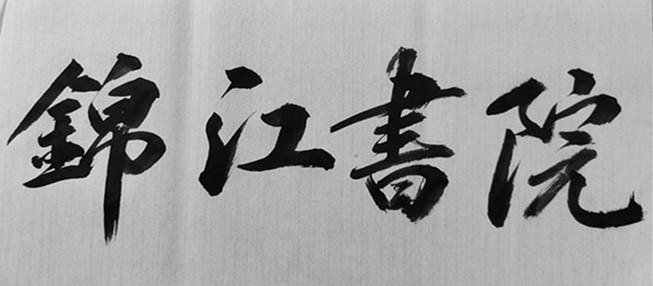 錦江書院